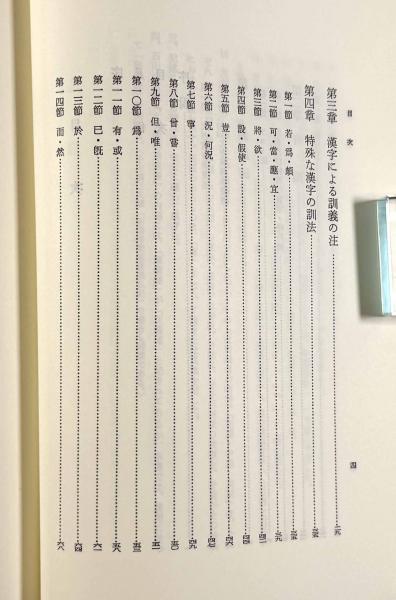 目次
第三章 漢字による訓義の注
第四章 特殊な漢字の訓法……三五
第一節 若・爲・頗……三五
第二節 可・當・應・宜……三九
第三節 將・欲
第四節 設・假使……四四
第五節 豈……四六
第六節 況・何況……四七
第七節 寧……四九
第八節 曾・嘗……五〇
第九節 但・唯
第一〇節 爲
第一一節 有・或……五八
第一二節 已・既
第一三節 於……六四
第一四節 而・然……六八
四